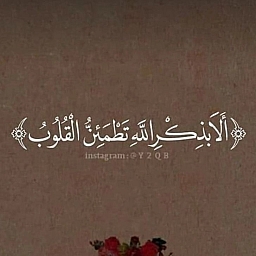 ﴿أَلَا بِذِكْرِ اللَّهِ تَطْمَئِنُّ الْقُلُوبُ﴾
instagram:@Y2QB